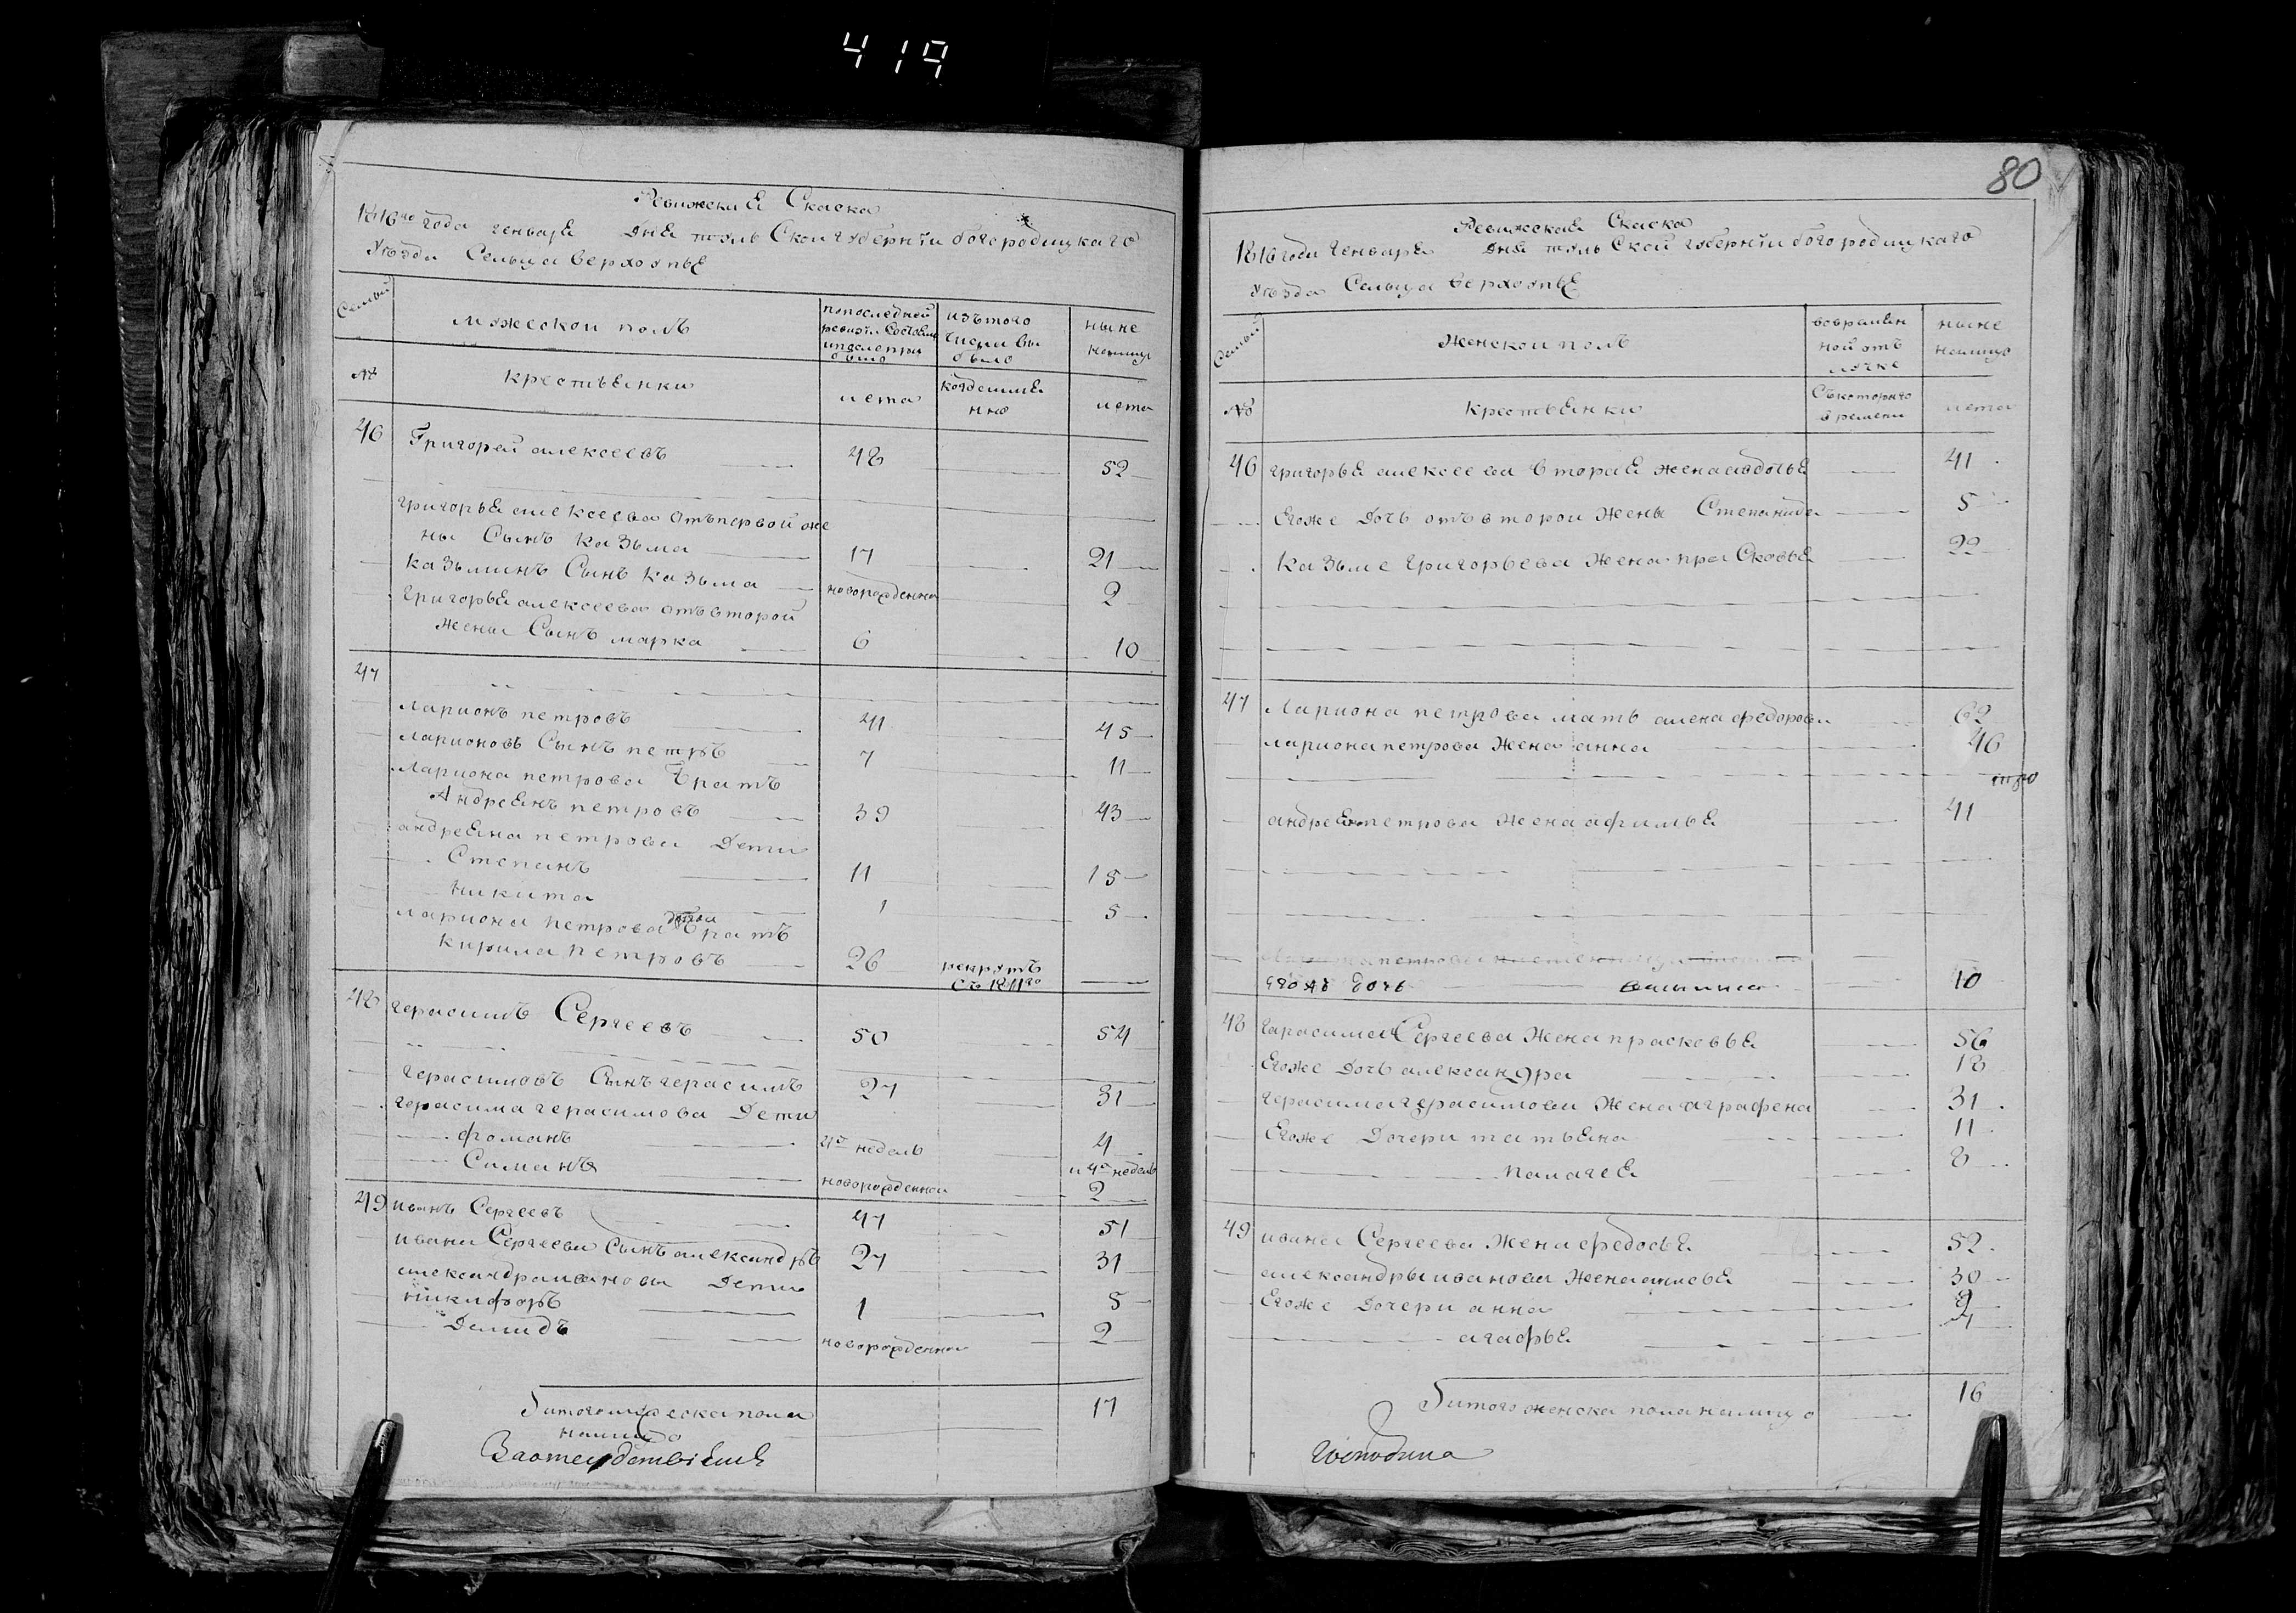 419
Ревижская Скаска
1816го года генваря дня тульской губернїи богородицкаго
уезда Сельца верхоупья
Семьи
мужескои полъ
попоследней ревизїи состояло и после прибыло
изътого числа выбыло
ныне налицо
№
крестьянки
лета
когда имянно
лета
46 Григорей алексеевъ 48 52
григорья алексеева отъпервой же
ны Сынъ казьма 17 21
казьминъ Сынъ казьма новорожденна 2
григорья алексеева отъвторой
жены Сынъ марка 6 10
47
ларионъ петровъ 41 45
ларионовъ Сынъ петръ 7 11
лариона петрова братъ
Андреянъ петровъ 39 43
андреяна петрова Дети
Степанъ 11 15
никита 1 5
лариона петрова другой братъ
кирила петровъ 26 рекрутъ
съ 1811го
48 герасимъ Сергеевъ 50 54
герасимовъ Сынъ герасимъ 27 31
герасима герасимова Дети
фоманъ 4х недель 4
и 4х недель
Симанъ новорожденна 2
49 иванъ Сергеевъ 47 51
ивана Сергеева Сынъ александръ 27 31
александра иванова Дети
никифоръ 1 5
Демидъ новорожденна 2
итого мужеска пола
налицо 17
80
Ревижская Скаска
1816 года генваря дня тульской губернїи богородицкаго
уезда Сельца верхоупья
Семьи
Женскои полъ
вовременной отлучке
ныне налицо
№
крестьянки
Съкоторого времени
лета
46 григорья алексеева вторая жена авдотья 41
Егоже Дочь отъвторои жены Степанида 5
казьме григорьева жена прасковья 22
47 Лариона петрова мать алена федорова 62
лариона петрова жена анна 46
андреяна петрова жена афимья 41
егожъ дочь 10
48 герасима Сергеева жена прасковья 56
Егоже Дочь александра 18
герасима герасимова жена аграфена 31
Егоже Дочери татьяна 11
палагея 8
49 ивана Сергеева жена федосья 52
александры иванова жена 30
Егоже Дочери анна 9
агафья 4
итого женска пола налицо 16
господина